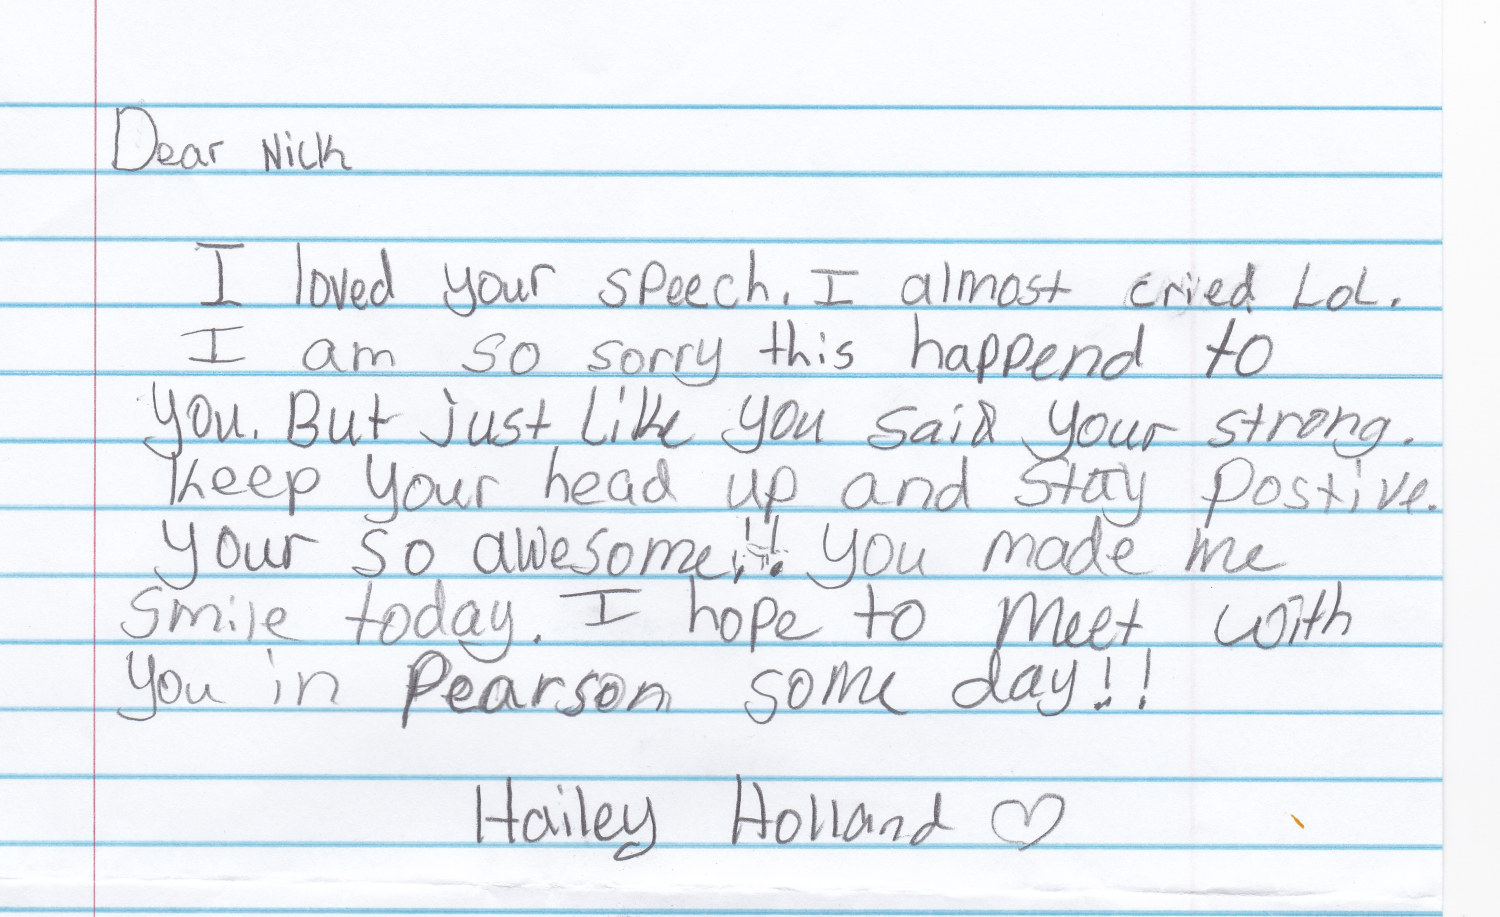 Dear Nick
I loved your speech. I almost cried LoL.
I am so sorry this happend to
you. But just like you said your strong.
Keep your head up and stay postive.
your so awesome!! you made me
smile today. I hope to meet with
you in Pearson some day!!
Hailey Holland ♡